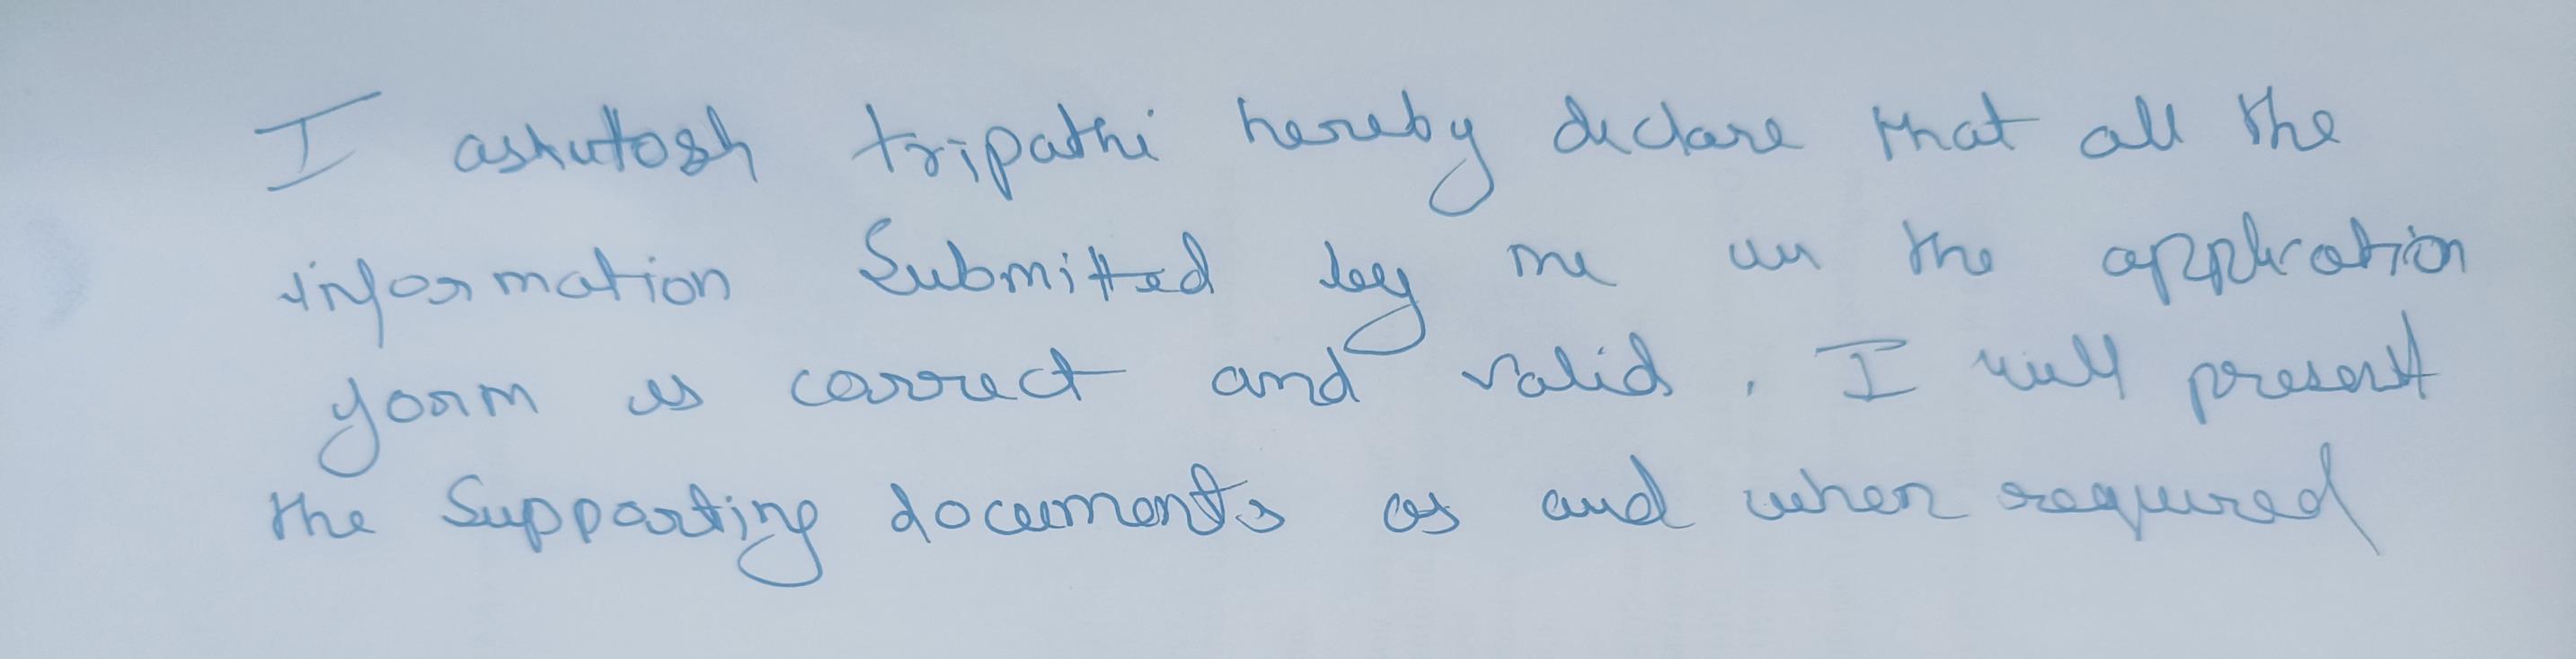 I ashutosh tripathi hereby declare that all the
information Submitted by me in the application
form is correct and valid. I will present
the Supporting documents as and when required